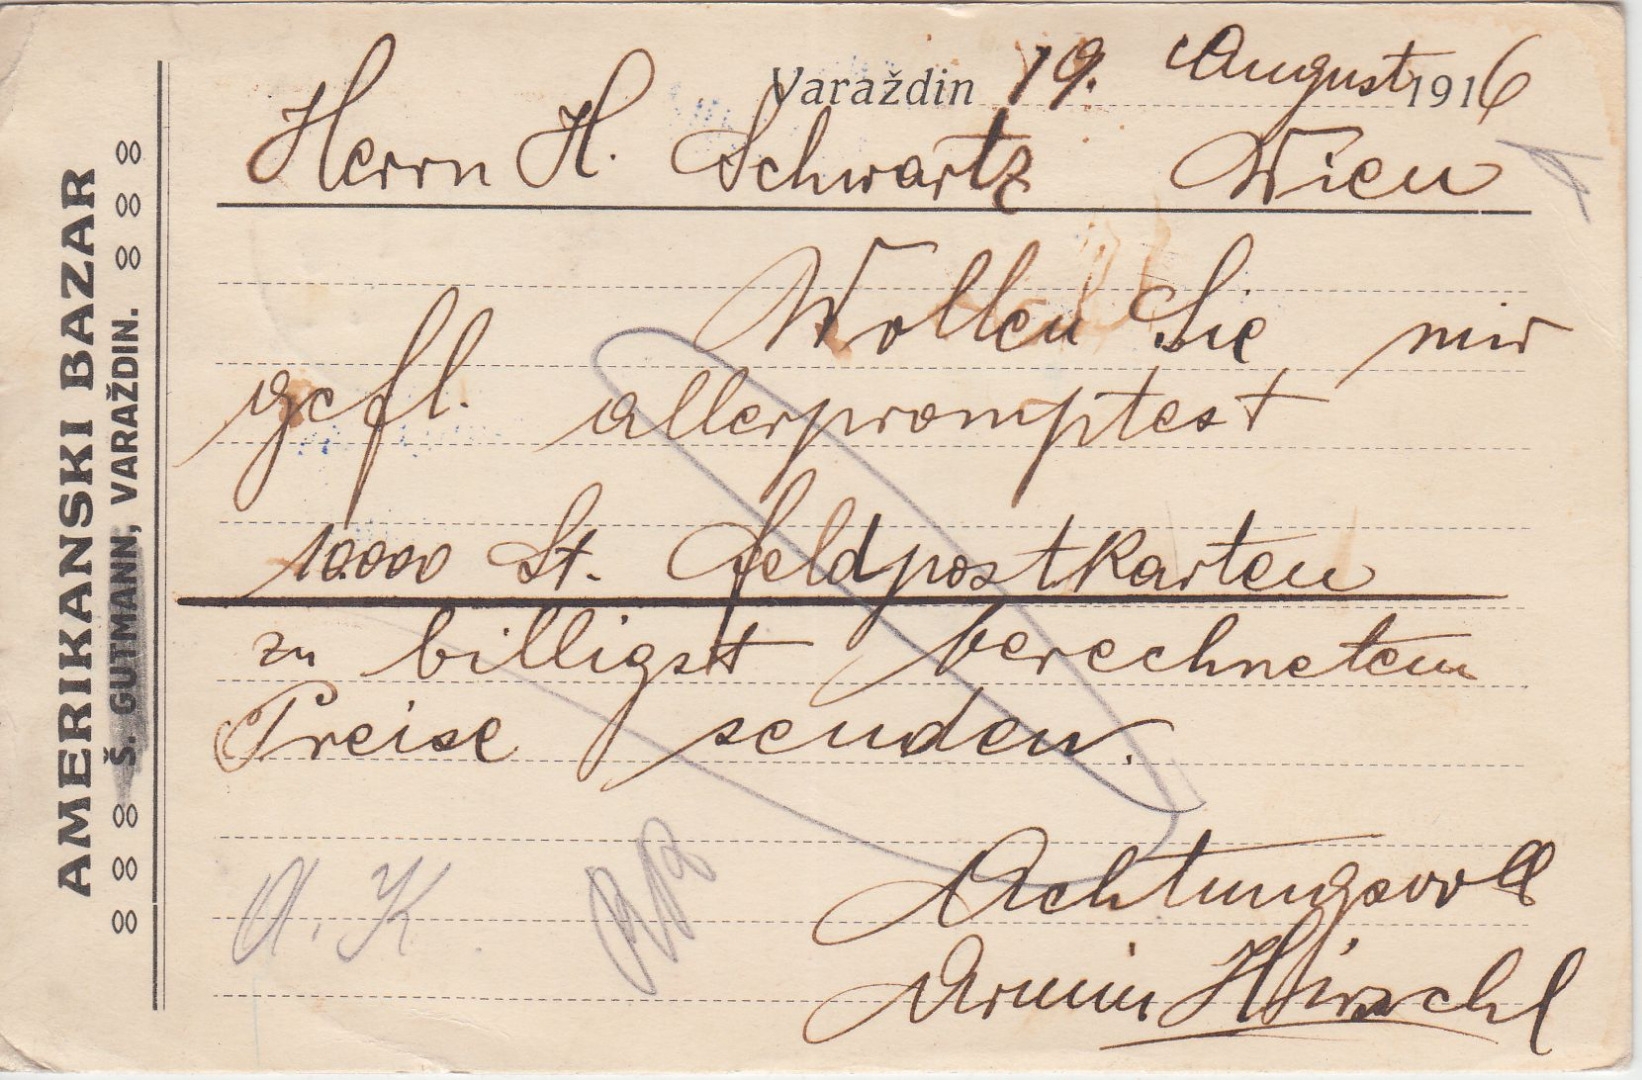 AMERIKANSKI BAZAR
Š. GUTMANN, VARAŽDIN.
Varaždin 19. August 1916
Herrn H. Schwartz Wien
Wollen Sie mir
gefl. allerpromptest
10.000 St. Feldpostkarten
zu billigst berechnetem
Preise senden.
Achtungsvoll
Armin Hirschl
A. K.